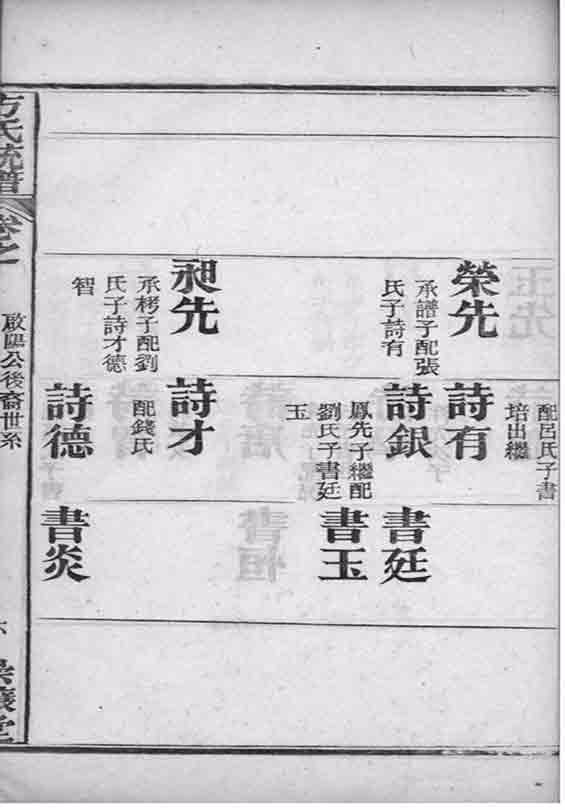 配呂氏子書
培出繼
榮先
承譜子配張
氏子詩有
詩有
詩銀
鳳先子繼配
劉氏子書廷
玉
書廷
書玉
昶先
承栲子配劉
氏子詩才德
智
詩才
配錢氏
詩德
書炎
方氏統譜
卷之
啟陽公後裔世系
六